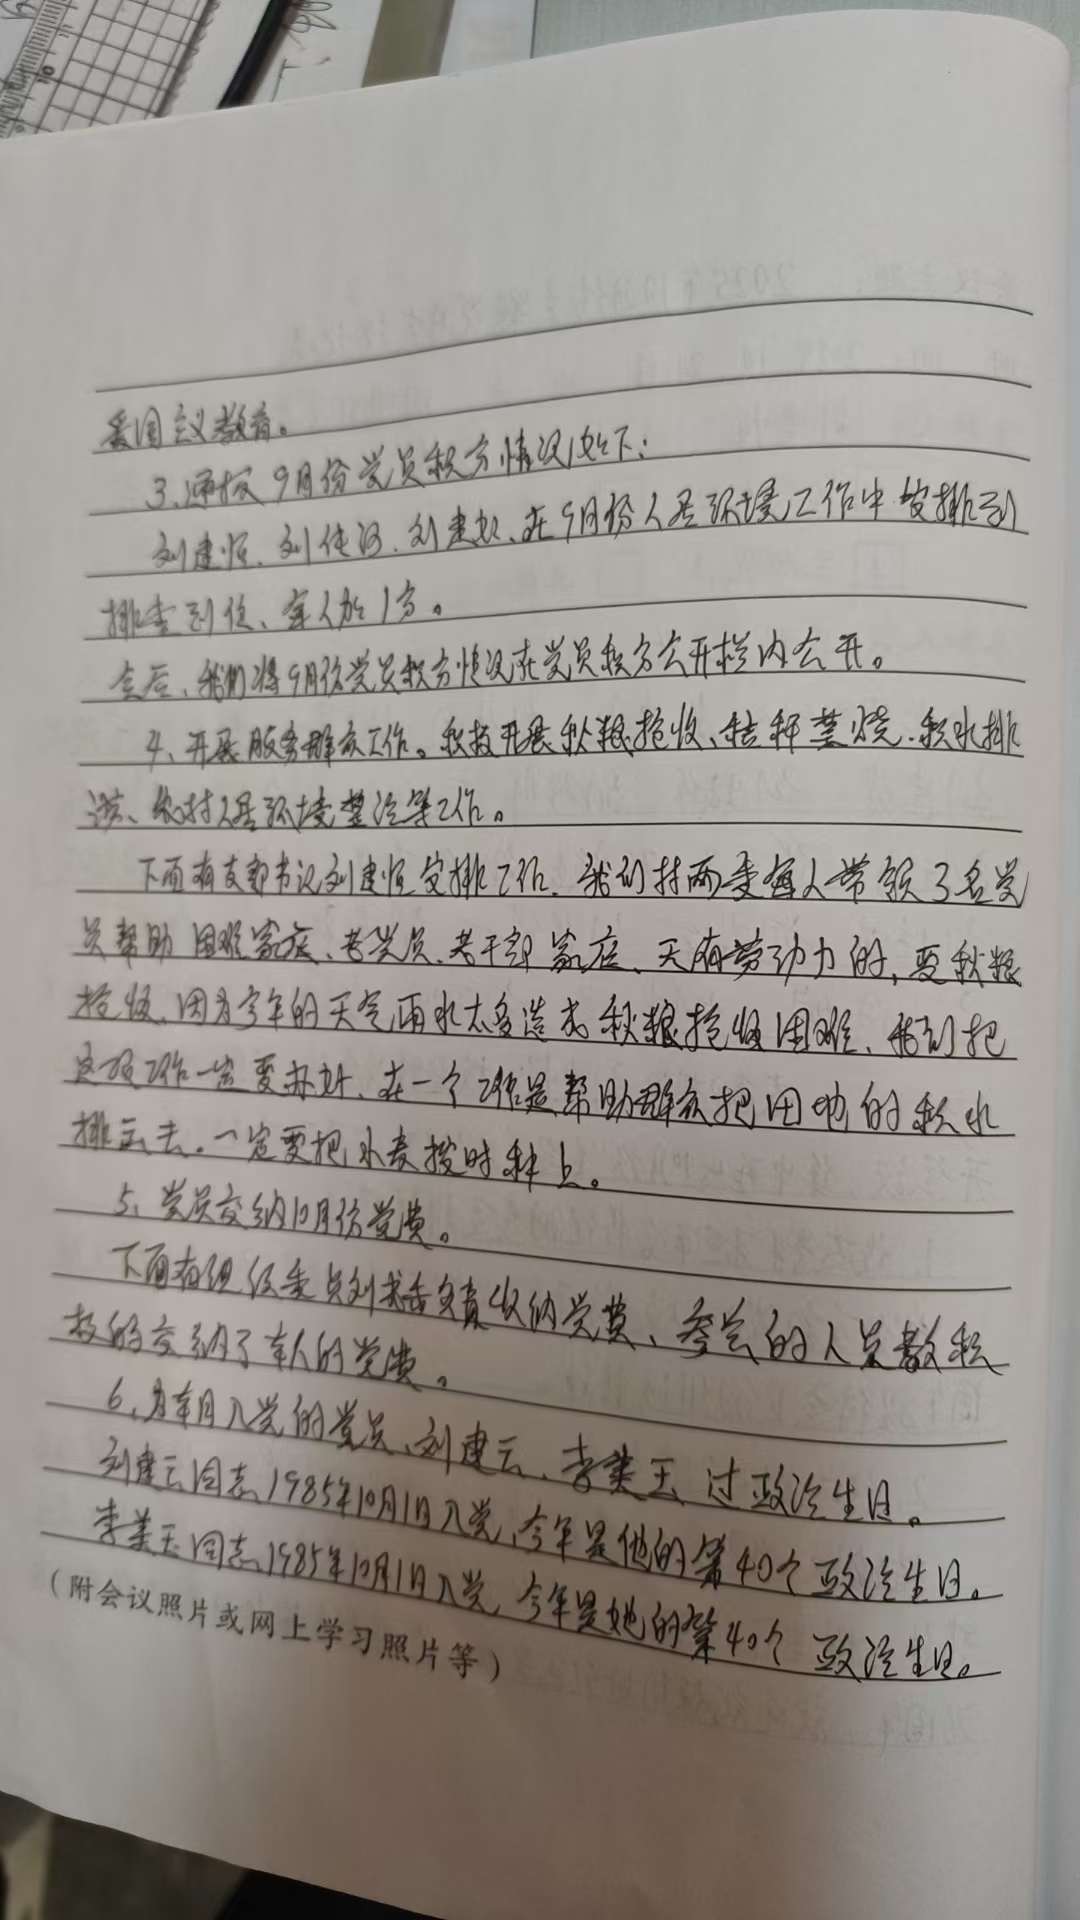 爱国主义教育。
3、通报9月份党员积分情况如下：
刘建恒、刘传河、刘建钦、在9月份人居环境工作中安排到
排查到位、每人加1分。
会后、我们将9月份党员积分情况在党员积分公开栏内公开。
4、开展服务群众工作。积极开展秋粮抢收、秸秆禁烧、积水排
涝、农村人居环境整治等工作。
下面有支部书记刘建恒安排工作、我们村两委每人带领3名党
员帮助困难家庭、老党员、老干部家庭、无有劳动力的，要秋粮
抢收、因为今年的天气雨水太多造成秋粮抢收困难、我们把
这项工作一定要办好、在一个工作是帮助群众把田地的积水
排出去。一定要把小麦按时种上。
5、党员交纳10月份党费。
下面有组织委员刘负责收纳党费、参会的人员都积
极的交纳了本人的党费。
6、为本月入党的党员、刘建云、李美玉过政治生日。
刘建云同志1985年10月1日入党、今年是他的第40个政治生日。
李美玉同志1985年10月1日入党、今年是她的第40个政治生日。
（附会议照片或网上学习照片等）